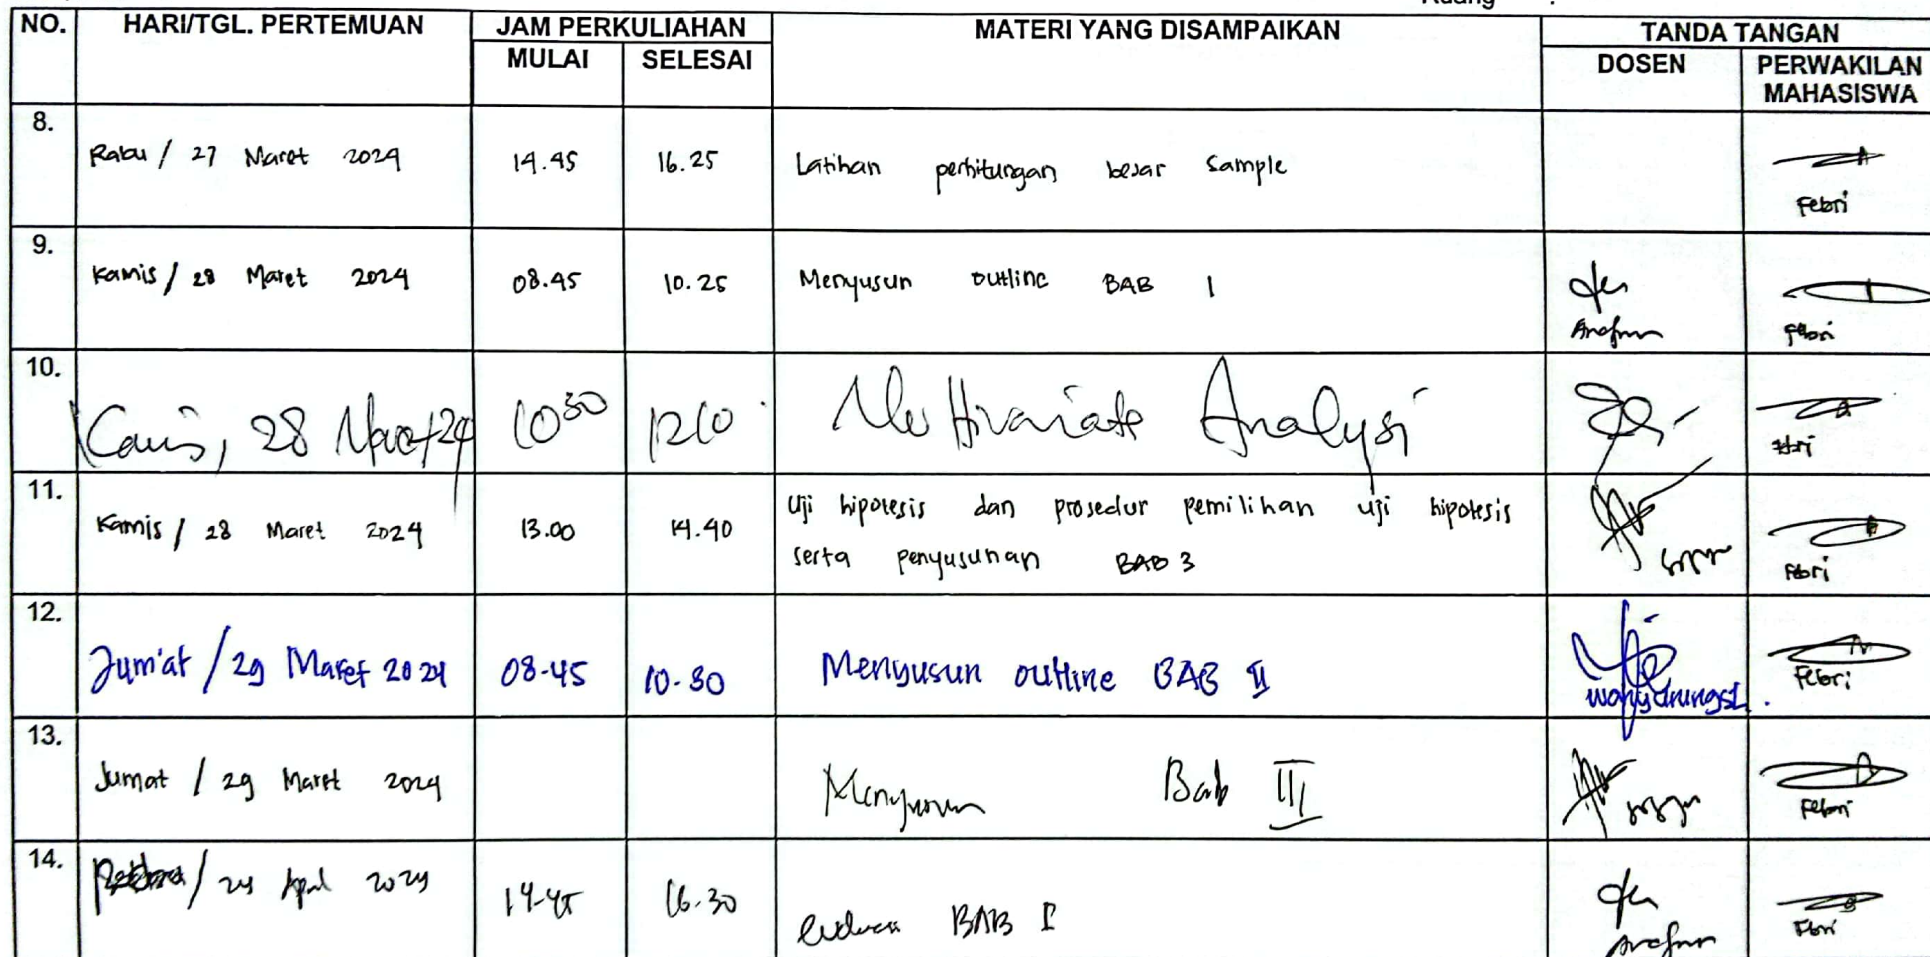 Ruang :
NO. HARI/TGL. PERTEMUAN JAM PERKULIAHAN MATERI YANG DISAMPAIKAN TANDA TANGAN
MULAI SELESAI DOSEN PERWAKILAN MAHASISWA
8. Rabu / 27 Maret 2024 14.45 16.25 Latihan perhitungan besar sample
Febri
9. Kamis / 28 Maret 2024 08.45 10.25 Menyusun outline BAB 1
Febri
10. Kamis, 28 Maret 24 10 30 1210 Multivariate Analysi
11. Kamis / 28 Maret 2024 13.00 14.40 Uji hipotesis dan prosedur pemilihan uji hipotesis
serta penyusunan BAB 3
Febri
12. Jum'at / 29 Maret 2024 08-45 10-30 Menyusun outline BAB II
Febri
13. Jumat / 29 Maret 2024 Menyusun Bab III
Febri
14. / 24 April 2024 14-45 16.30 BAB I
Febri